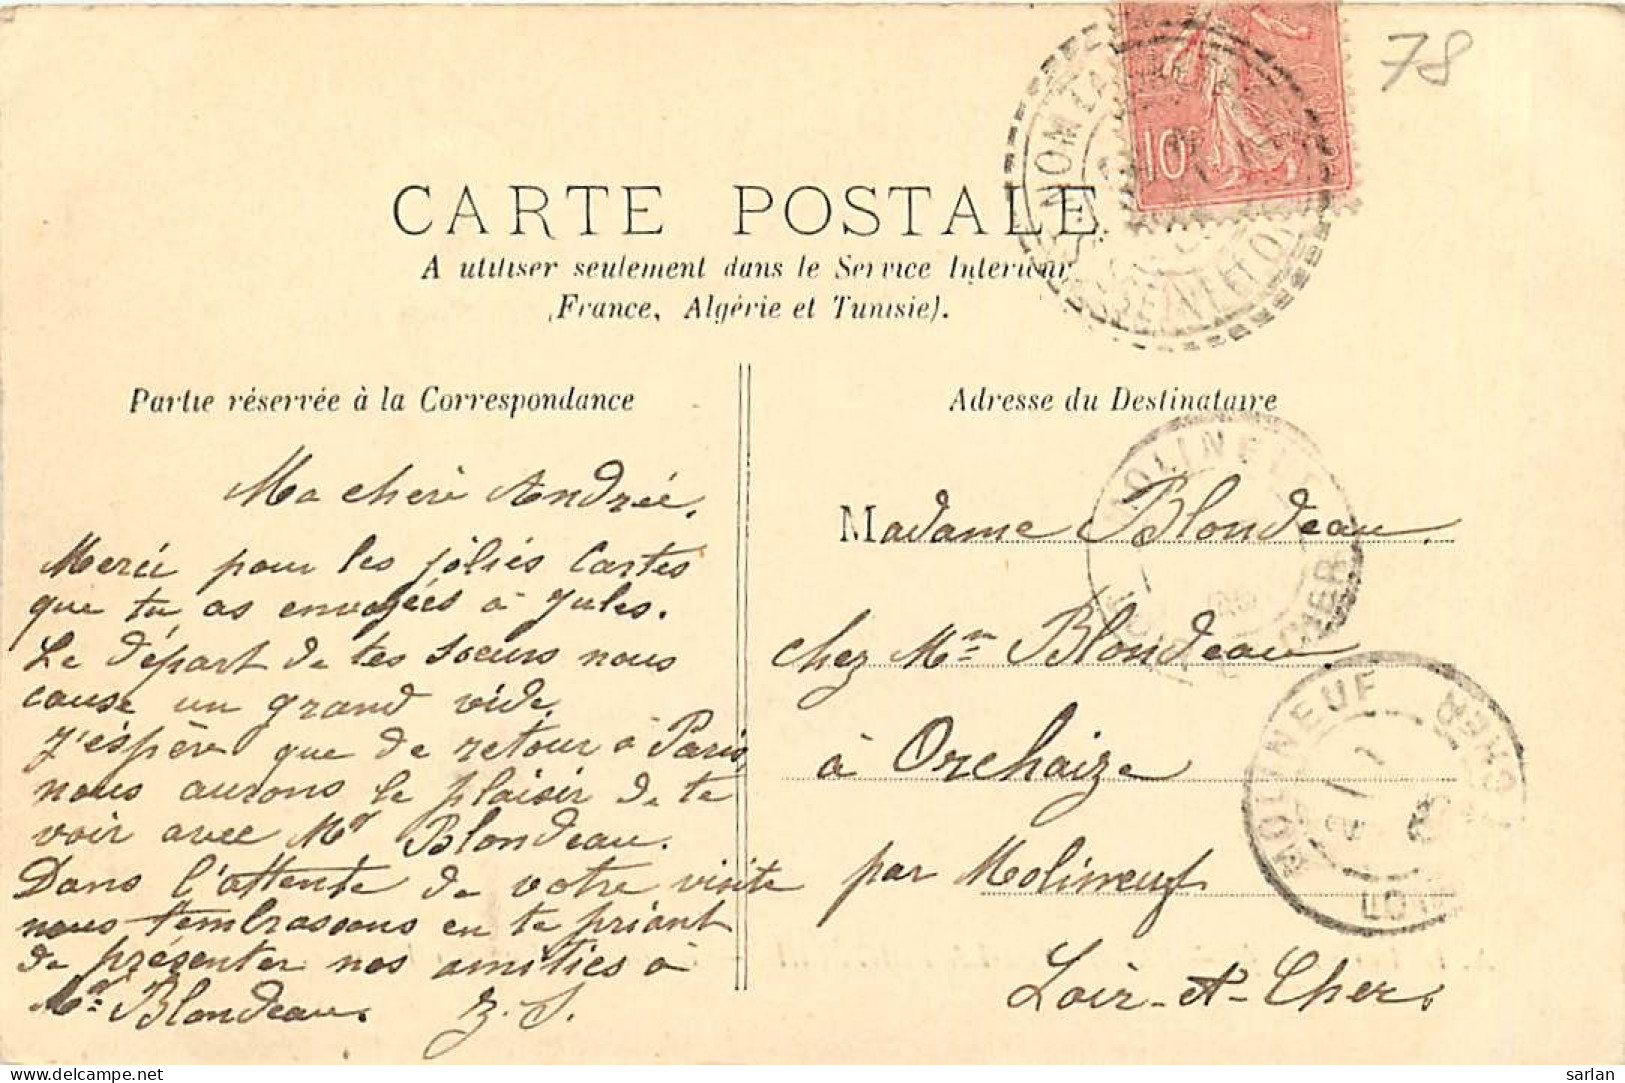 78
10
CARTE POSTALE
A utiliser seulement dans le Service Intérieur
(France, Algérie et Tunisie).
Partie réservée à la Correspondance
Ma chère Andrée,
Merci pour les jolies Cartes
que tu as envoyées à Jules.
Le départ de tes soeurs nous
cause un grand vide.
J'espère que de retour à Paris,
nous aurons le plaisir de te
voir avec Mr Blondeau.
Dans l'attente de votre visite
nous t'embrassons en te priant
de présenter nos amitiés à
Mr Blondeau. J. S.
Adresse du Destinataire
Madame Blondeau.
chez Mme Blondeau.
à Orchaize
par Molineuf
Loir-et-Cher.
MOLINEUF
LOIR ET CHER
MOLINEUF
LOIR ET CHER
SEINE ET OISE
sarlan
delcampe.net